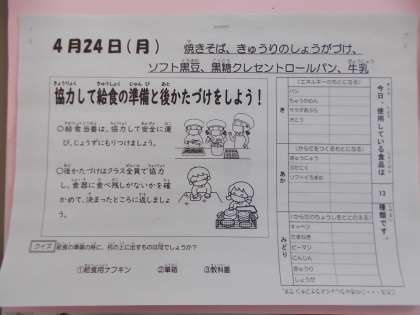 4月24日(月)
焼きそば、きゅうりのしょうがづけ、
ソフト黒豆、黒糖クレセントロールパン、牛乳
協力して給食の準備と後かたづけをしよう!
○給食当番は、協力して安全に運
び、じょうずにもりつけましょう。
○後かたづけはクラス全員で協力
し、食器に食べ残しがないかを確
かめて、決まったところに返しましょ
う。
クイズ 給食の準備の時に、机の上に出すものは何でしょうか?
①給食用ナフキン ②筆箱 ③教科書
今日、使用している食品は
13
種類です。
き
(エネルギーのもとになる)
パン
ちゅうかめん
サラダあぶら
さとう
あか
(からだをつくるもとになる)
ぎゅうにゅう
ぶたにく
ソフトくろまめ
みどり
(からだのちょうしをととのえる)
キャベツ
たまねぎ
ピーマン
にんじん
きゅうり
しょうが